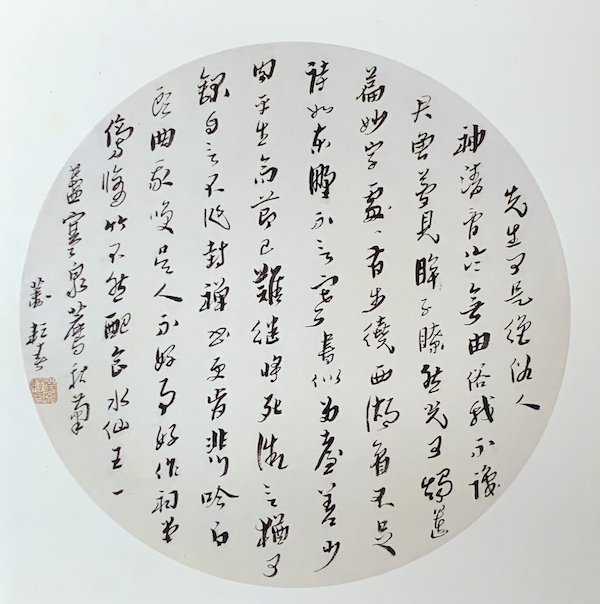 先生可是絕俗人
神清骨冷無由俗我不識
君曾夢見眸子瞭然光可燭遺
篇妙字處々有步繞西湖看不足
詩如東野不言寒書似西臺差少
肉平生高節已難繼將死微言猶可
錄自言不封禪書更肯悲吟白
頭曲我咲吳人不好事好作祠堂
傍修竹不然配食水仙王一
盞寒泉薦秋菊
蕭耘春